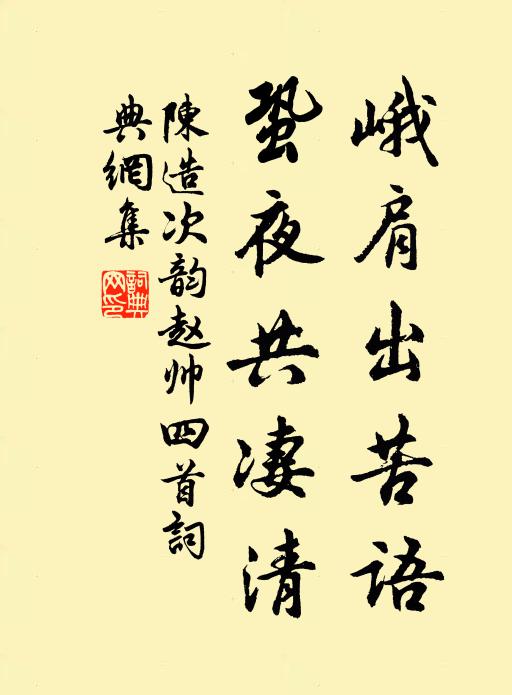 峨肩出苦语
蛩夜共凄清
陳造次韵赵帅四首詞
典網集
詞典网印